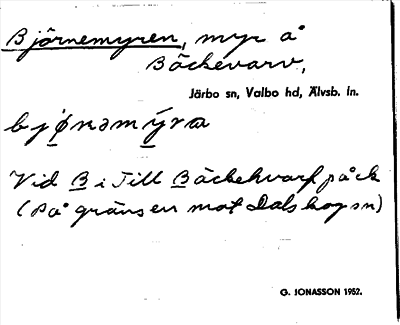 Björnemyren, myr å
Bäckevarv,
Järbo sn, Valbo hd, Älvsb. ln.
bjǿnəmýra
Vid B i Till Bäckehvarf på ck
(På gräns en mot Dalskog sn)
G. JONASSON 1952.